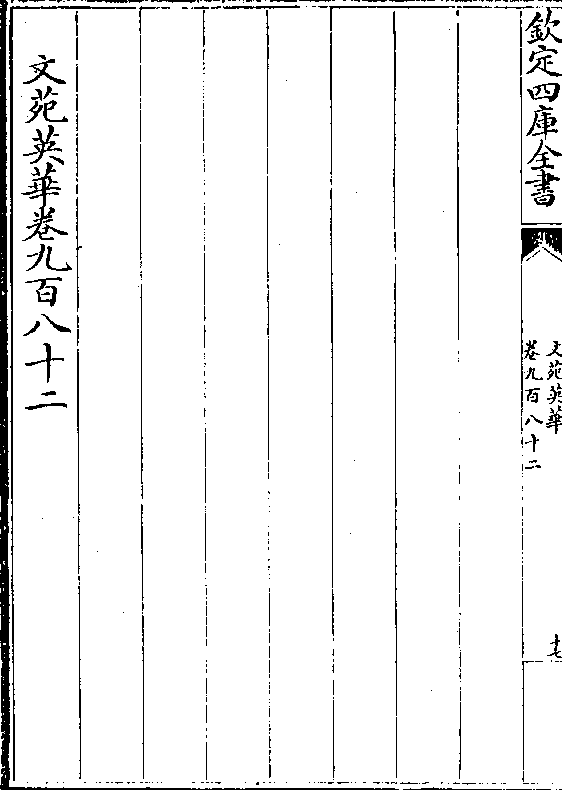 欽定四庫全書
文苑英華
卷九百八十二
十七
文苑英華卷九百八十二